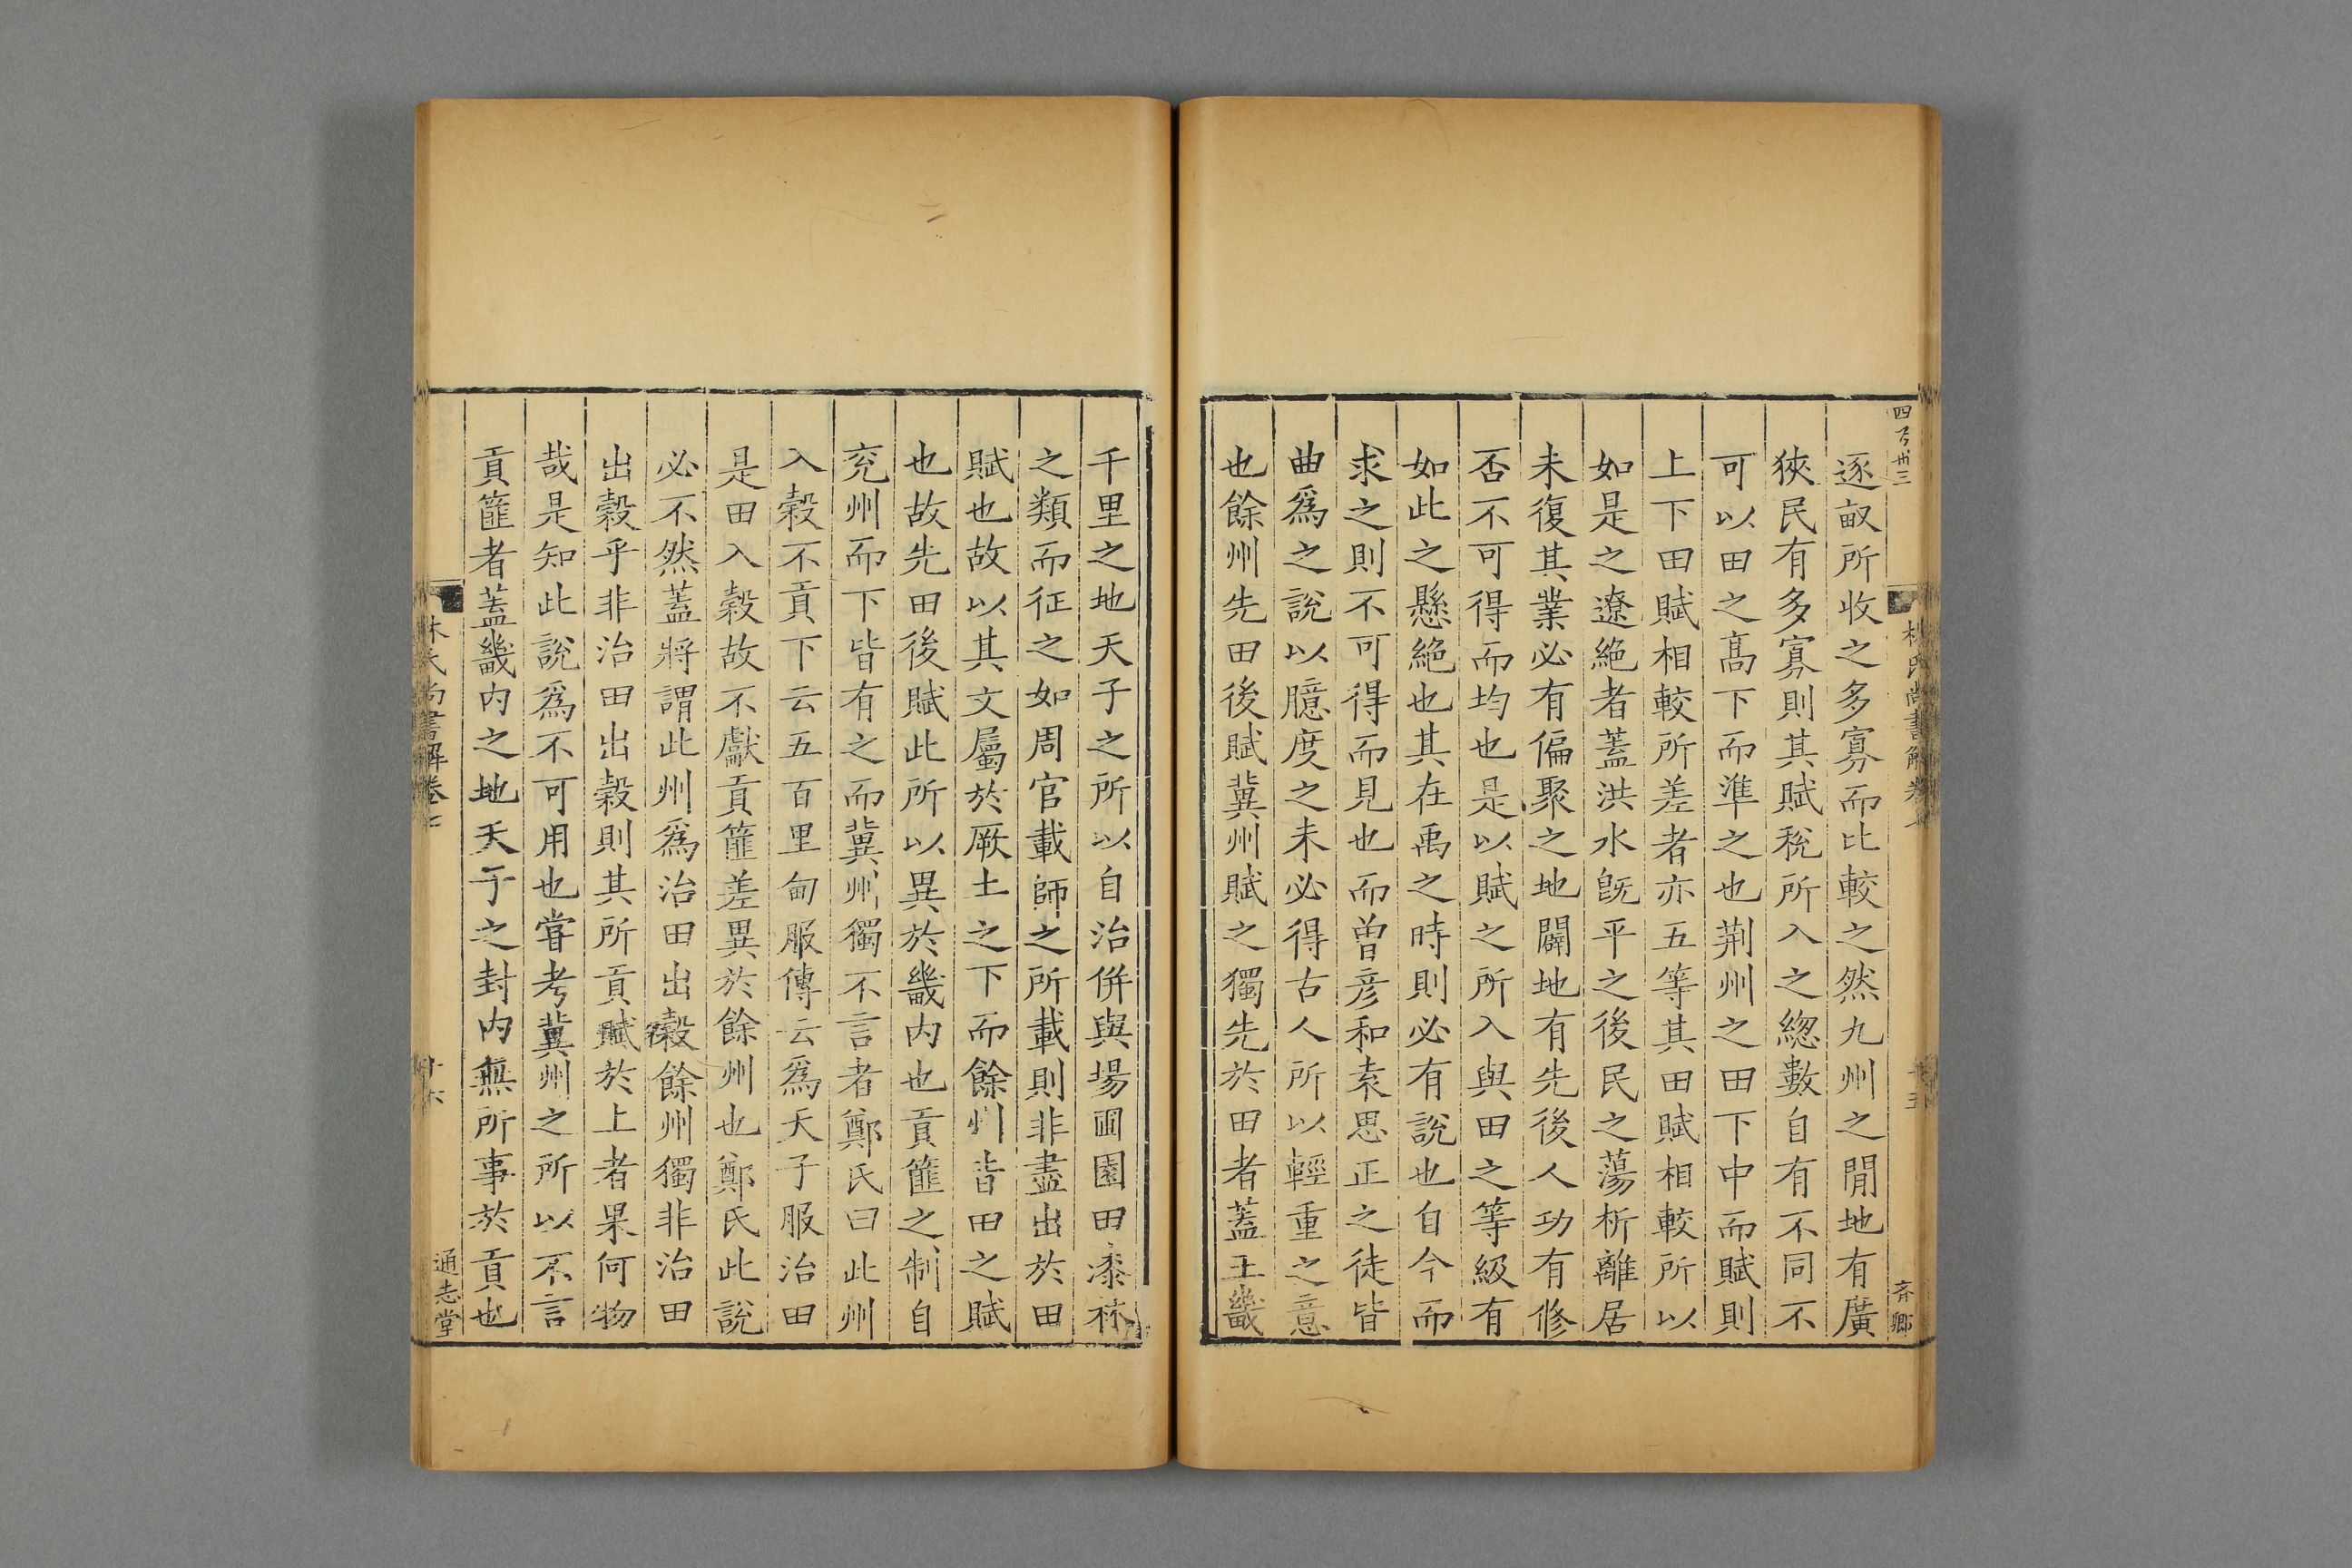 林氏尚書解卷七
逐畝所收之多寡而比較之然九州之閒地有廣
狹民有多寡則其賦稅所入之緫數自有不同不
可以田之髙下而準之也荆州之田下中而賦則
上下田賦相較所差者亦五等其田賦相較所以
如是之遼絶者蓋洪水旣平之後民之蕩析離居
未復其業必有偏聚之地闢地有先後人功有修
否不可得而均也是以賦之所入與田之等級有
如此之懸絶也其在禹之時則必有說也自今而
求之則不可得而見也而曽彦和袁思正之徒皆
曲爲之說以臆度之未必得古人所以輕重之意
也餘州先田後賦冀州賦之獨先於田者蓋王畿
千里之地天子之所以自治併與場圃園田漆林
之類而征之如周官載師之所載則非盡出於田
賦也故以其文屬於厥土之下而餘州皆田之賦
也故先田後賦此所以異於畿内也貢篚之制自
兖州而下皆有之而冀州獨不言者鄭氏曰此州
入穀不貢下云五百里甸服傳云爲天子服治田
是田入穀故不獻貢篚差異於餘州也鄭氏此說
必不然蓋將謂此州爲治田出穀餘州獨非治田
出穀乎非治田出穀則其所貢賦於上者果何物
哉是知此說爲不可用也甞考冀州之所以不言
貢篚者蓋畿内之地天子之封内無所事於貢也
林氏尚書解卷七
十六
通志堂